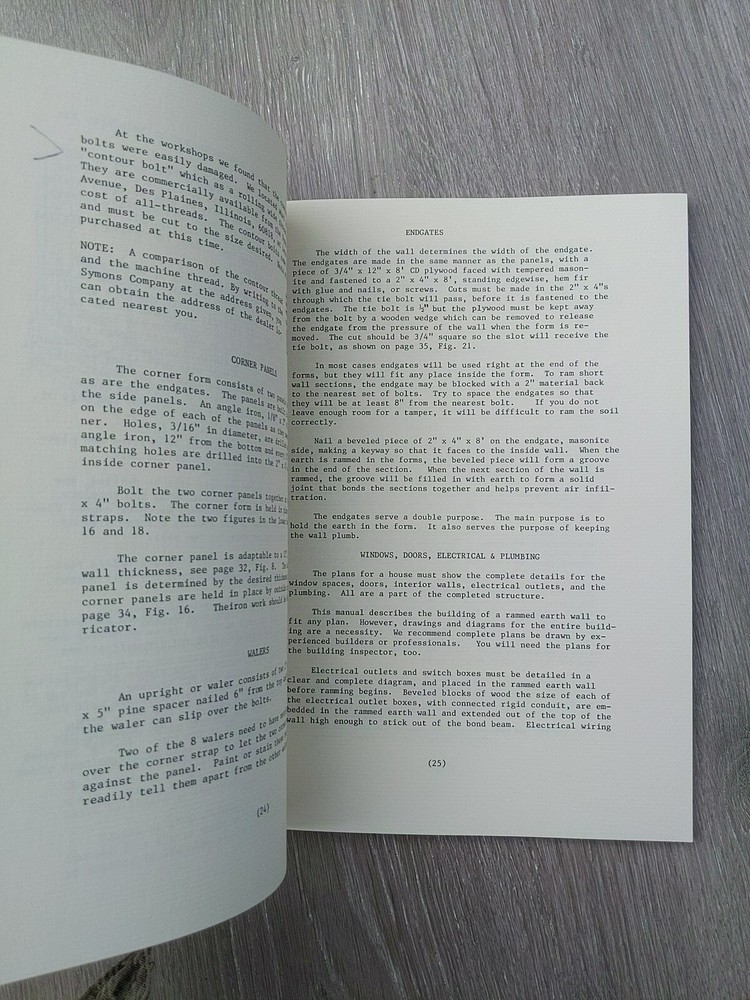 At the workshops we found that the
bolts were easily damaged. We located
"contour bolt" which as a rolling wide
They are commercially available from the
Avenue, Des Plaines, Illinois, 60018, at
cost of all-threads. The contour bolts
and must be cut to the size desired.
purchased at this time.
NOTE: A comparison of the contour thread
and the machine thread. By writing to the
Symons Company at the address given, you
can obtain the address of the dealer lo-
cated nearest you.
CORNER PANELS
The corner form consists of two panels
as are the endgates. The panels are
the side panels. An angle iron, 1/8" x
on the edge of each of the panels as the
ner. Holes, 3/16" in diameter, are
angle iron, 12" from the bottom and every
matching holes are drilled into the 2" x
inside corner panel.
Bolt the two corner panels together
x 4" bolts. The corner form is held in
straps. Note the two figures in the
16 and 18.
The corner panel is adaptable to a
wall thickness, see page 32, Fig. 8.
panel is determined by the desired
corner panels are held in place by
page 34, Fig. 16. Theiron work should
ricator.
WALERS
An upright or waler consists of two
x 5" pine spacer nailed 6" from the
the waler can slip over the bolts.
Two of the 8 walers need to have
over the corner strap to let the two
against the panel. Paint or stain these
readily tell them apart from the other
(24)
ENDGATES
The width of the wall determines the width of the endgate.
The endgates are made in the same manner as the panels, with a
piece of 3/4" x 12" x 8' CD plywood faced with tempered mason-
ite and fastened to a 2" x 4" x 8', standing edgewise, hem fir
with glue and nails, or screws. Cuts must be made in the 2" x 4"s
through which the tie bolt will pass, before it is fastened to the
endgates. The tie bolt is ½" but the plywood must be kept away
from the bolt by a wooden wedge which can be removed to release
the endgate from the pressure of the wall when the form is re-
moved. The cut should be 3/4" square so the slot will receive the
tie bolt, as shown on page 35, Fig. 21.
In most cases endgates will be used right at the end of the
forms, but they will fit any place inside the form. To ram short
wall sections, the endgate may be blocked with a 2" material back
to the nearest set of bolts. Try to space the endgates so that
they will be at least 8" from the nearest bolt. If you do not
leave enough room for a tamper, it will be difficult to ram the soil
correctly.
Nail a beveled piece of 2" x 4" x 8' on the endgate, masonite
side, making a keyway so that it faces to the inside wall. When the
earth is rammed in the forms, the beveled piece will form a groove
in the end of the section. When the next section of the wall is
rammed, the groove will be filled in with earth to form a solid
joint that bonds the sections together and helps prevent air infil-
tration.
The endgates serve a double purpose. The main purpose is to
hold the earth in the form. It also serves the purpose of keeping
the wall plumb.
WINDOWS, DOORS, ELECTRICAL & PLUMBING
The plans for a house must show the complete details for the
window spaces, doors, interior walls, electrical outlets, and the
plumbing. All are a part of the completed structure.
This manual describes the building of a rammed earth wall to
fit any plan. However, drawings and diagrams for the entire build-
ing are a necessity. We recommend complete plans be drawn by ex-
perienced builders or professionals. You will need the plans for
the building inspector, too.
Electrical outlets and switch boxes must be detailed in a
clear and complete diagram, and placed in the rammed earth wall
before ramming begins. Beveled blocks of wood the size of each of
the electrical outlet boxes, with connected rigid conduit, are em-
bedded in the rammed earth wall and extended out of the top of the
wall high enough to stick out of the bond beam. Electrical wiring
(25)